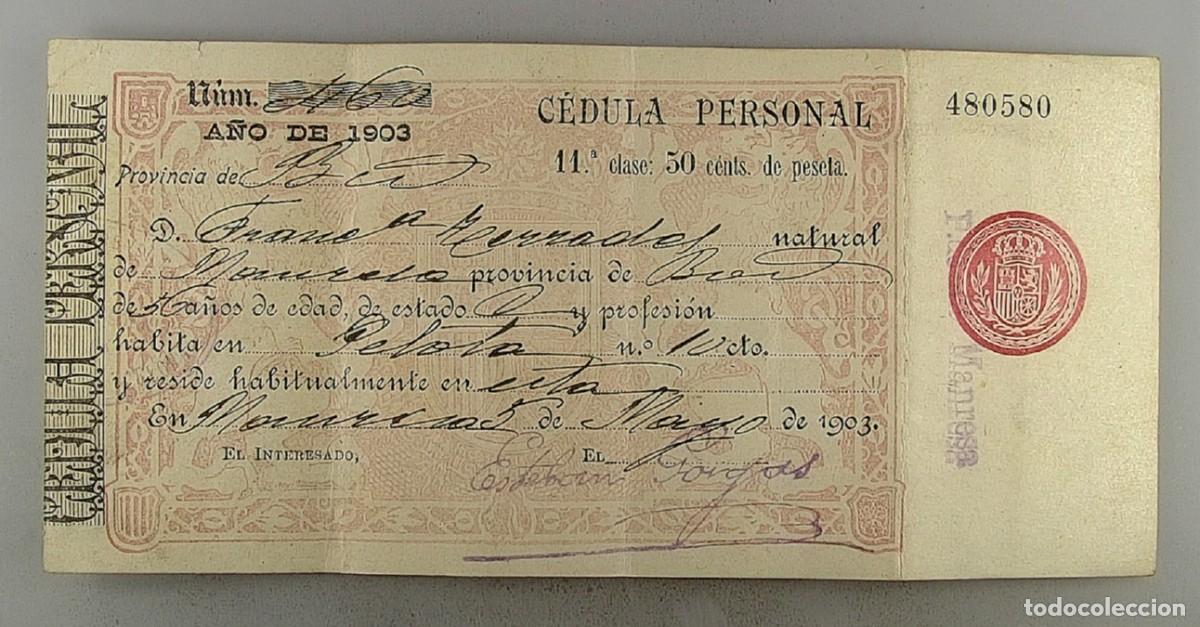 CÉDULA PERSONAL
Núm. 460
AÑO DE 1903
CÉDULA PERSONAL
480580
11.ª clase: 50 cénts. de peseta.
Provincia de
D. Franc.ª natural
de Manresa provincia de
de años de edad, de estado y profesión
habita en Pelota n.º 10 cto.
y reside habitualmente en esta
En Manresa 5 de Mayo de 1903.
EL INTERESADO,
EL
Esteban
Manresa
todocoleccion